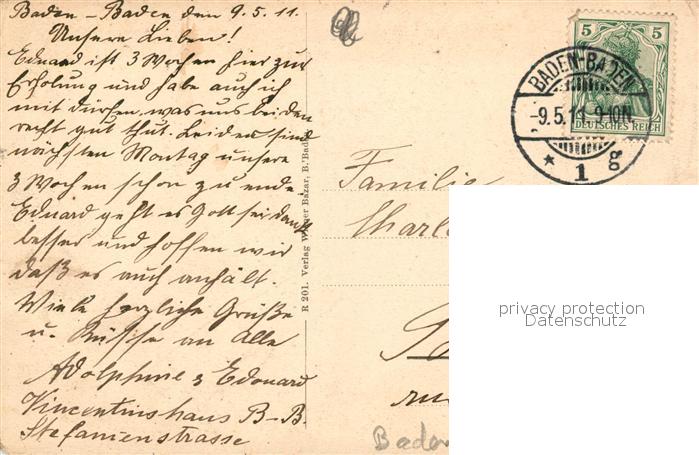 Baden-Baden den 9.5.11.
Unsere Lieben!
Eduard ist 3 Wochen hier zur
Erholung und habe auch ich
mit dürfen, was uns beiden
recht gut thut. Leider sind
nächsten Montag unsere
3 Wochen schon zu ende
Eduard geht es Gott sei dank
besser und hoffen wir
daß es auch anhält.
Viele herzliche Grüße
u. Küsse an Alle
Adolphine & Edouard
Vincentinshaus B-B.
Stefanienstrasse
R 201. Verlag Wiener Bazar, B.'Baden
5 5
DEUTSCHES REICH
BADEN-BADEN
-9.5.11. 9-10N.
* 1 g
Familie
Charle
Baden
privacy protection
Datenschutz